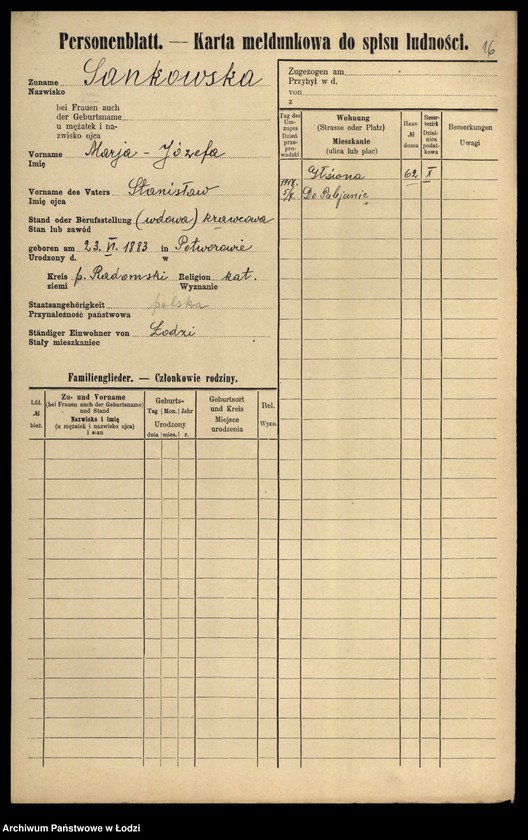 Personenblatt. — Karta meldunkowa do spisu ludności.
16
Zuname Sankowska
Nazwisko
bei Frauen auch
der Geburtsname
u mężatek i na-
zwisko ojca
Vorname Marja - Józefa
Imię
Vorname des Vaters Stanisław
Imię ojca
Stand oder Berufsstellung (wdowa) krawcowa
Stan lub zawód
geboren am 23. VI. 1883 in Potworowie
Urodzony d. w
Kreis p. Radomski Religion kat.
ziemi Wyznanie
Staatsangehörigkeit polska
Przynależność państwowa
Ständiger Einwohner von Łodzi
Stały mieszkaniec
Familienglieder. — Członkowie rodziny.
Lfd. № bież.
Zu- und Vorname
(bei Frauen auch der Geburtsname)
und Stand
Nazwisko i imię
(u mężatek i nazwisko ojca)
i stan
Geburts-
Tag Mon. Jahr
Urodzony
dnia mies. r.
Geburtsort
und Kreis
Miejsce
urodzenia
Rel.
Wyzn.
Zugezogen am
Przybył w d.
von
z
Tag des
Um-
zuges
Dzień
prze-
pro-
wadzki
Wohnung
(Strasse oder Platz)
Mieszkanie
(ulica lub plac)
Haus
№
domu
Steuer-
bezirk
Dziel-
nica
podat-
kowa
Bemerkungen
Uwagi
Główna 62 X
Do Pabjanic
Archiwum Państwowe w Łodzi